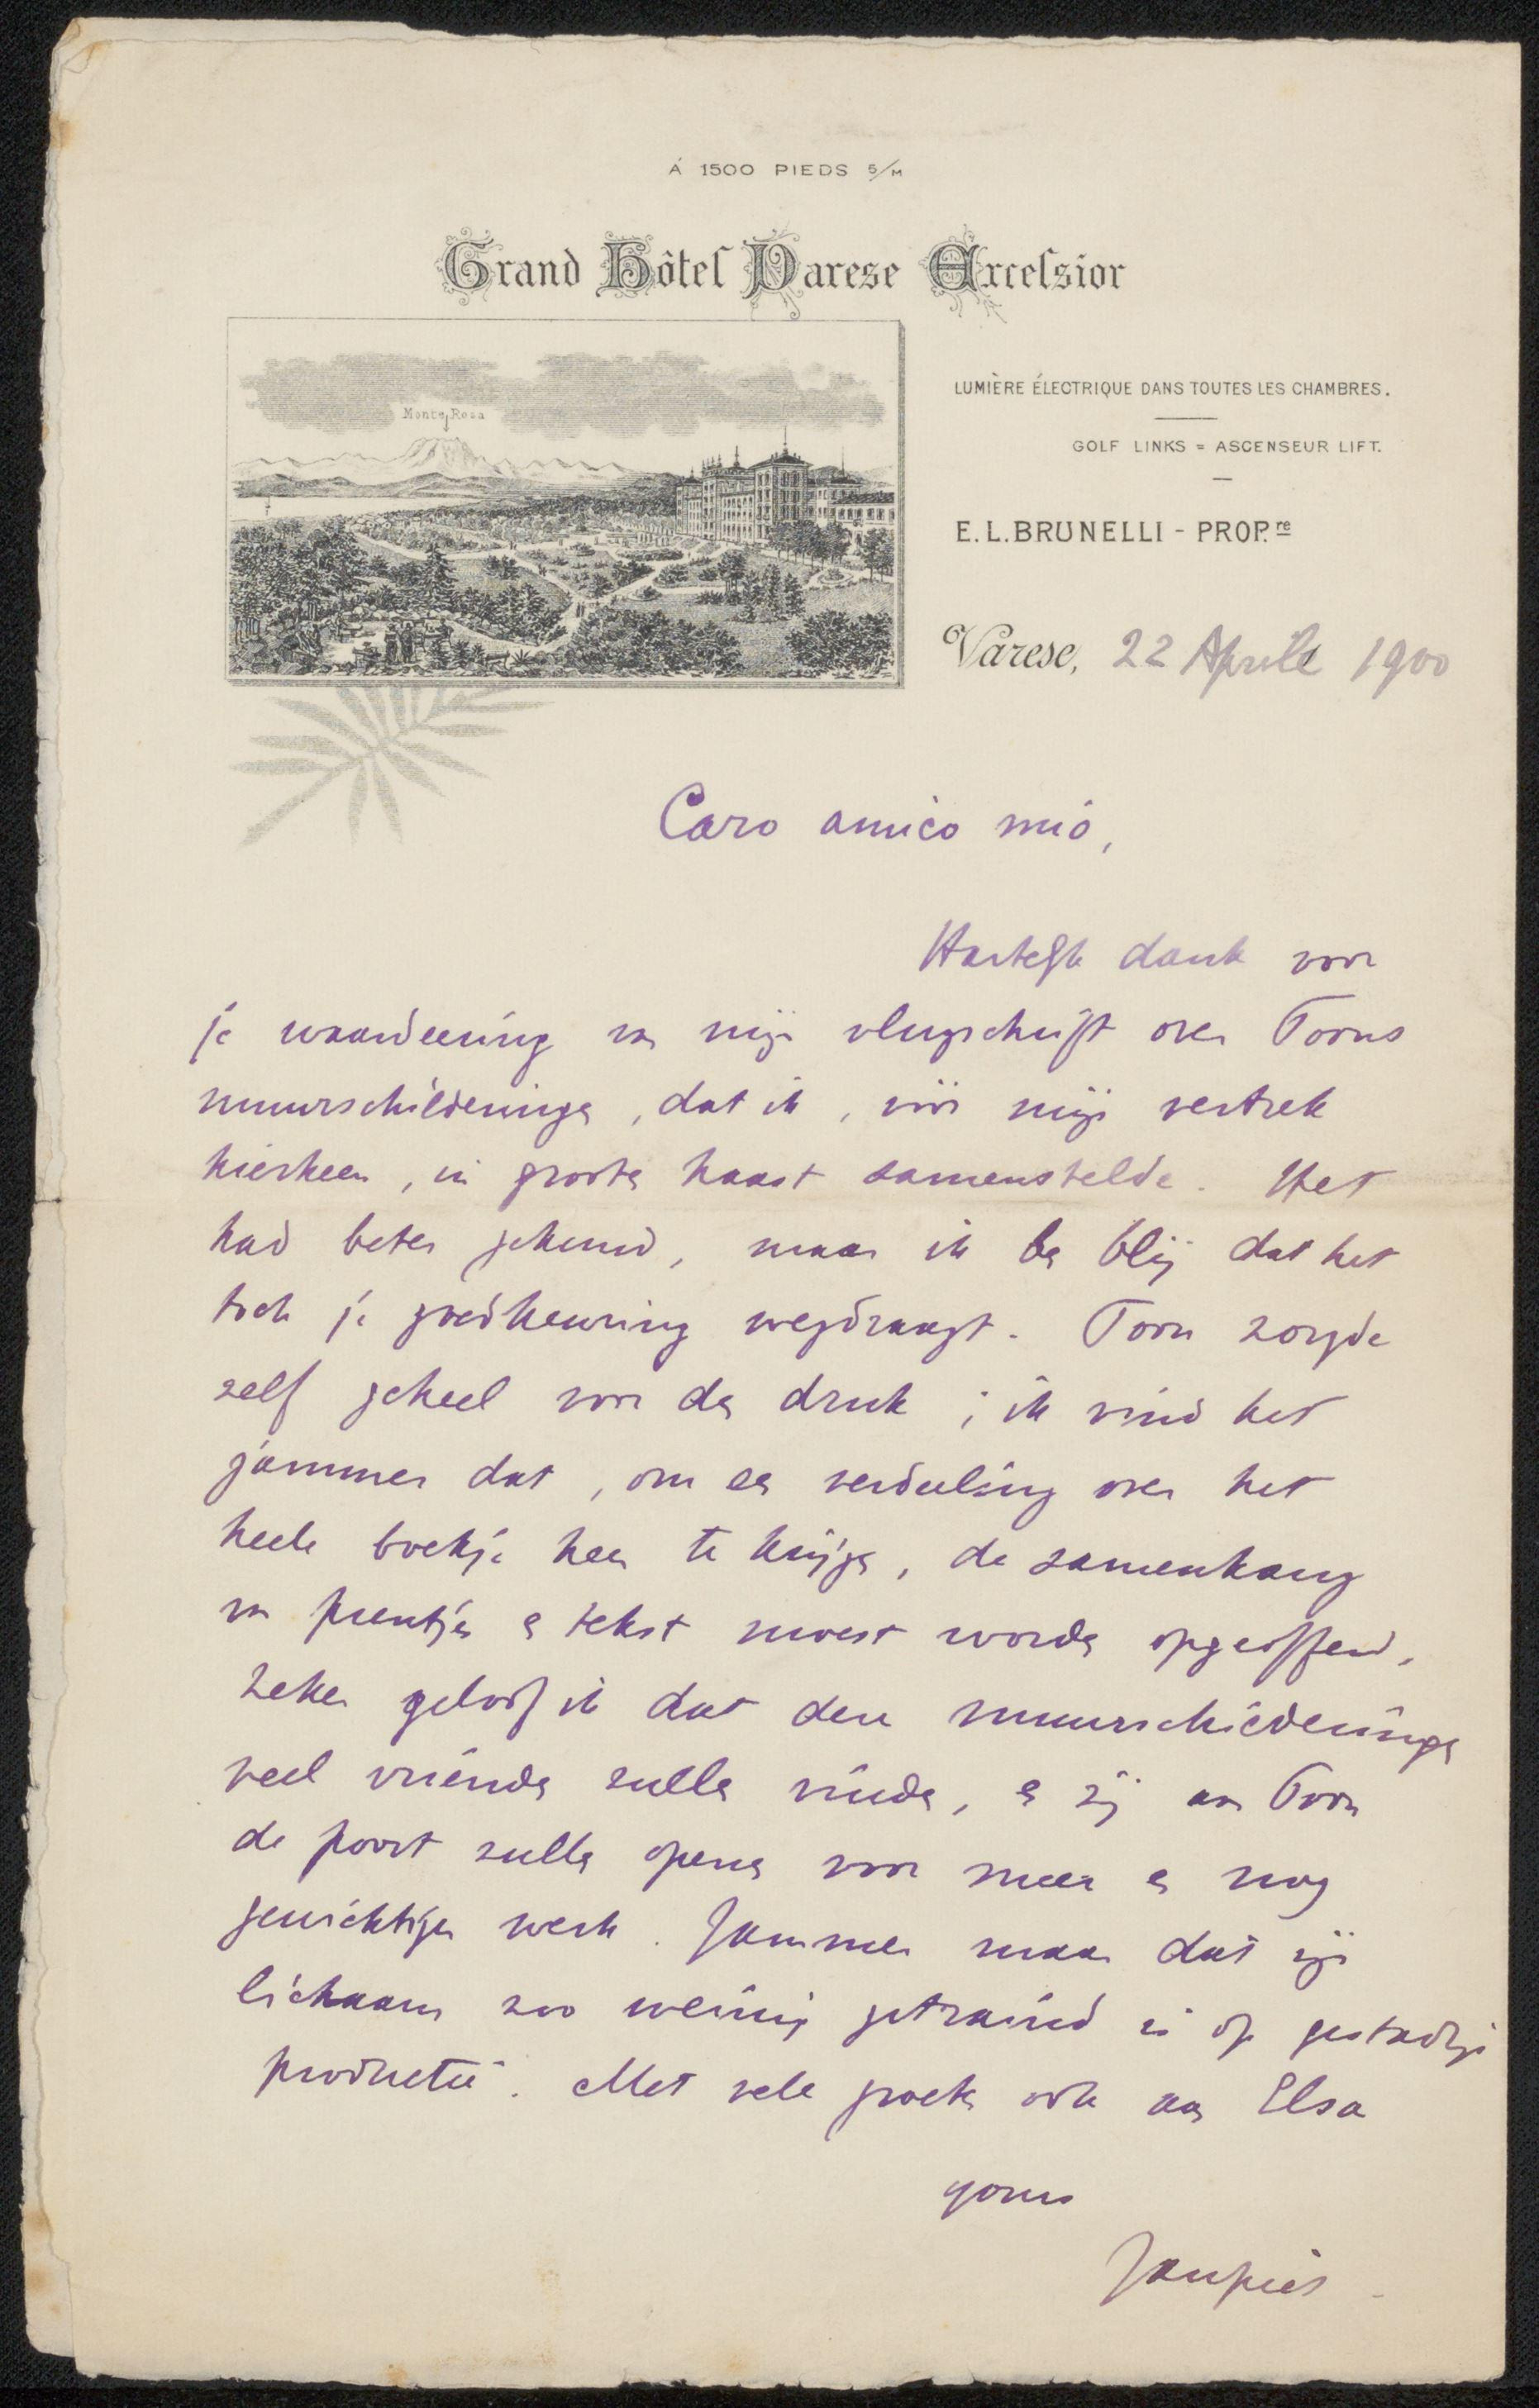 À 1500 PIEDS S/M
Grand Hôtel Varese Excelsior
Monte Rosa
LUMIÈRE ÉLECTRIQUE DANS TOUTES LES CHAMBRES.
GOLF LINKS = ASCENSEUR LIFT.
E. L. BRUNELLI - PROP.re
Varese, 22 Aprile 1900
Caro amico mio,
Hartelijk dank voor
je waardeering van mijn vlugschrift over Toorns
muurschilderingen, dat ik, vóór mijn vertrek
hierheen, in groote haast samenstelde. Het
had beter gekund, maar ik ben blij dat het
toch je goedkeuring wegdraagt. Toorn zorgde
zelf geheel voor den druk; ik vind het
jammer dat, om een verdeeling over het
heele boekje heen te krijgen, de samenhang
van prentjes en tekst moest worden opgeofferd.
Zeker geloof ik dat deze muurschilderingen
veel vrienden zullen vinden, en zij aan Toorn
de poort zullen openen voor meer en nog
gewichtiger werk. Jammer maar dat zijn
lichaam zoo weinig getraind is op gestadige
productie. Met vele groeten ook aan Elsa
yours
Janpiet